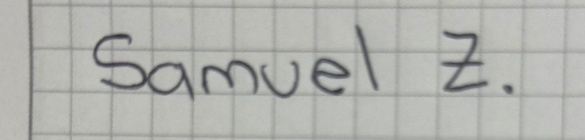 Samuel Z.